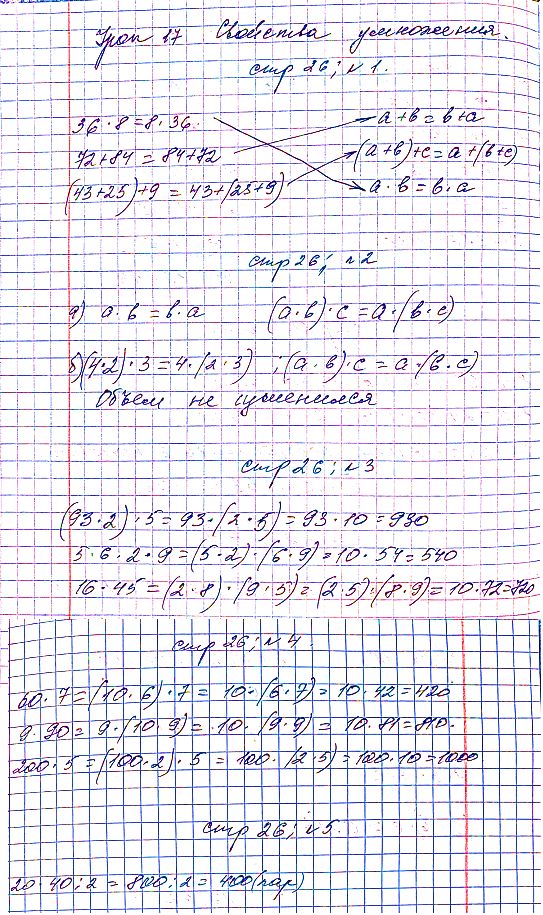 Урок 17 Свойства умножения.
стр 26; №1.
36·8=8·36. a+b=b+a
72+84=84+72 (a+b)+c=a+(b+c)
(43+25)+9=43+(25+9) a·b=b·a
стр 26; №2
а) a·b=b·a (a·b)·c=a·(b·c)
б) (4·2)·3=4·(2·3) ; (a·b)·c=a·(b·c)
Объём не изменился
стр 26; №3
(93·2)·5=93·(2·5)=93·10=930
5·6·2·9=(5·2)·(6·9)=10·54=540
16·45=(2·8)·(9·5)=(2·5)·(8·9)=10·72=720
стр 26; №4.
60·7=(10·6)·7=10·(6·7)=10·42=420
9·90=9·(10·9)=10·(9·9)=10·81=810.
200·5=(100·2)·5=100·(2·5)=100·10=1000
стр 26; №5.
20·40:2=800:2=400(пар)